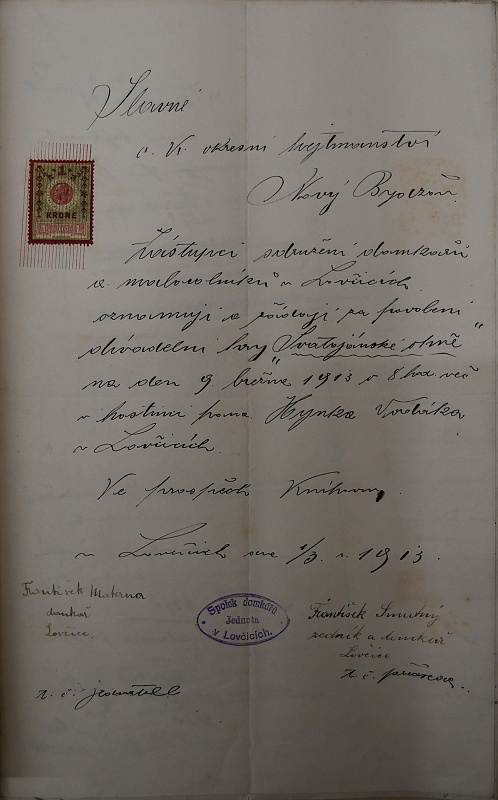 Slavné
c. k. okresní hejtmanství
Nový Bydžov.
1
KRONE
Zástupci sdružení domkařů
a malorolníků v Lovčicích
oznamují a žádají za povolení
divadelní hry „Svatojánské ohně"
na den 9. března 1913 v 8 hod. več.
v hostinci pana Hynka Vodáka
v Lovčicích.
Ve prospěch Knihovny.
v Lovčicích dne 1/3. r. 1913.
František Materna
domkář
Lovčice
t. č. jednatel
Spolek domkářů
Jednota
v Lovčicích.
František Smutný
zedník a domkář
Lovčice
t. č.